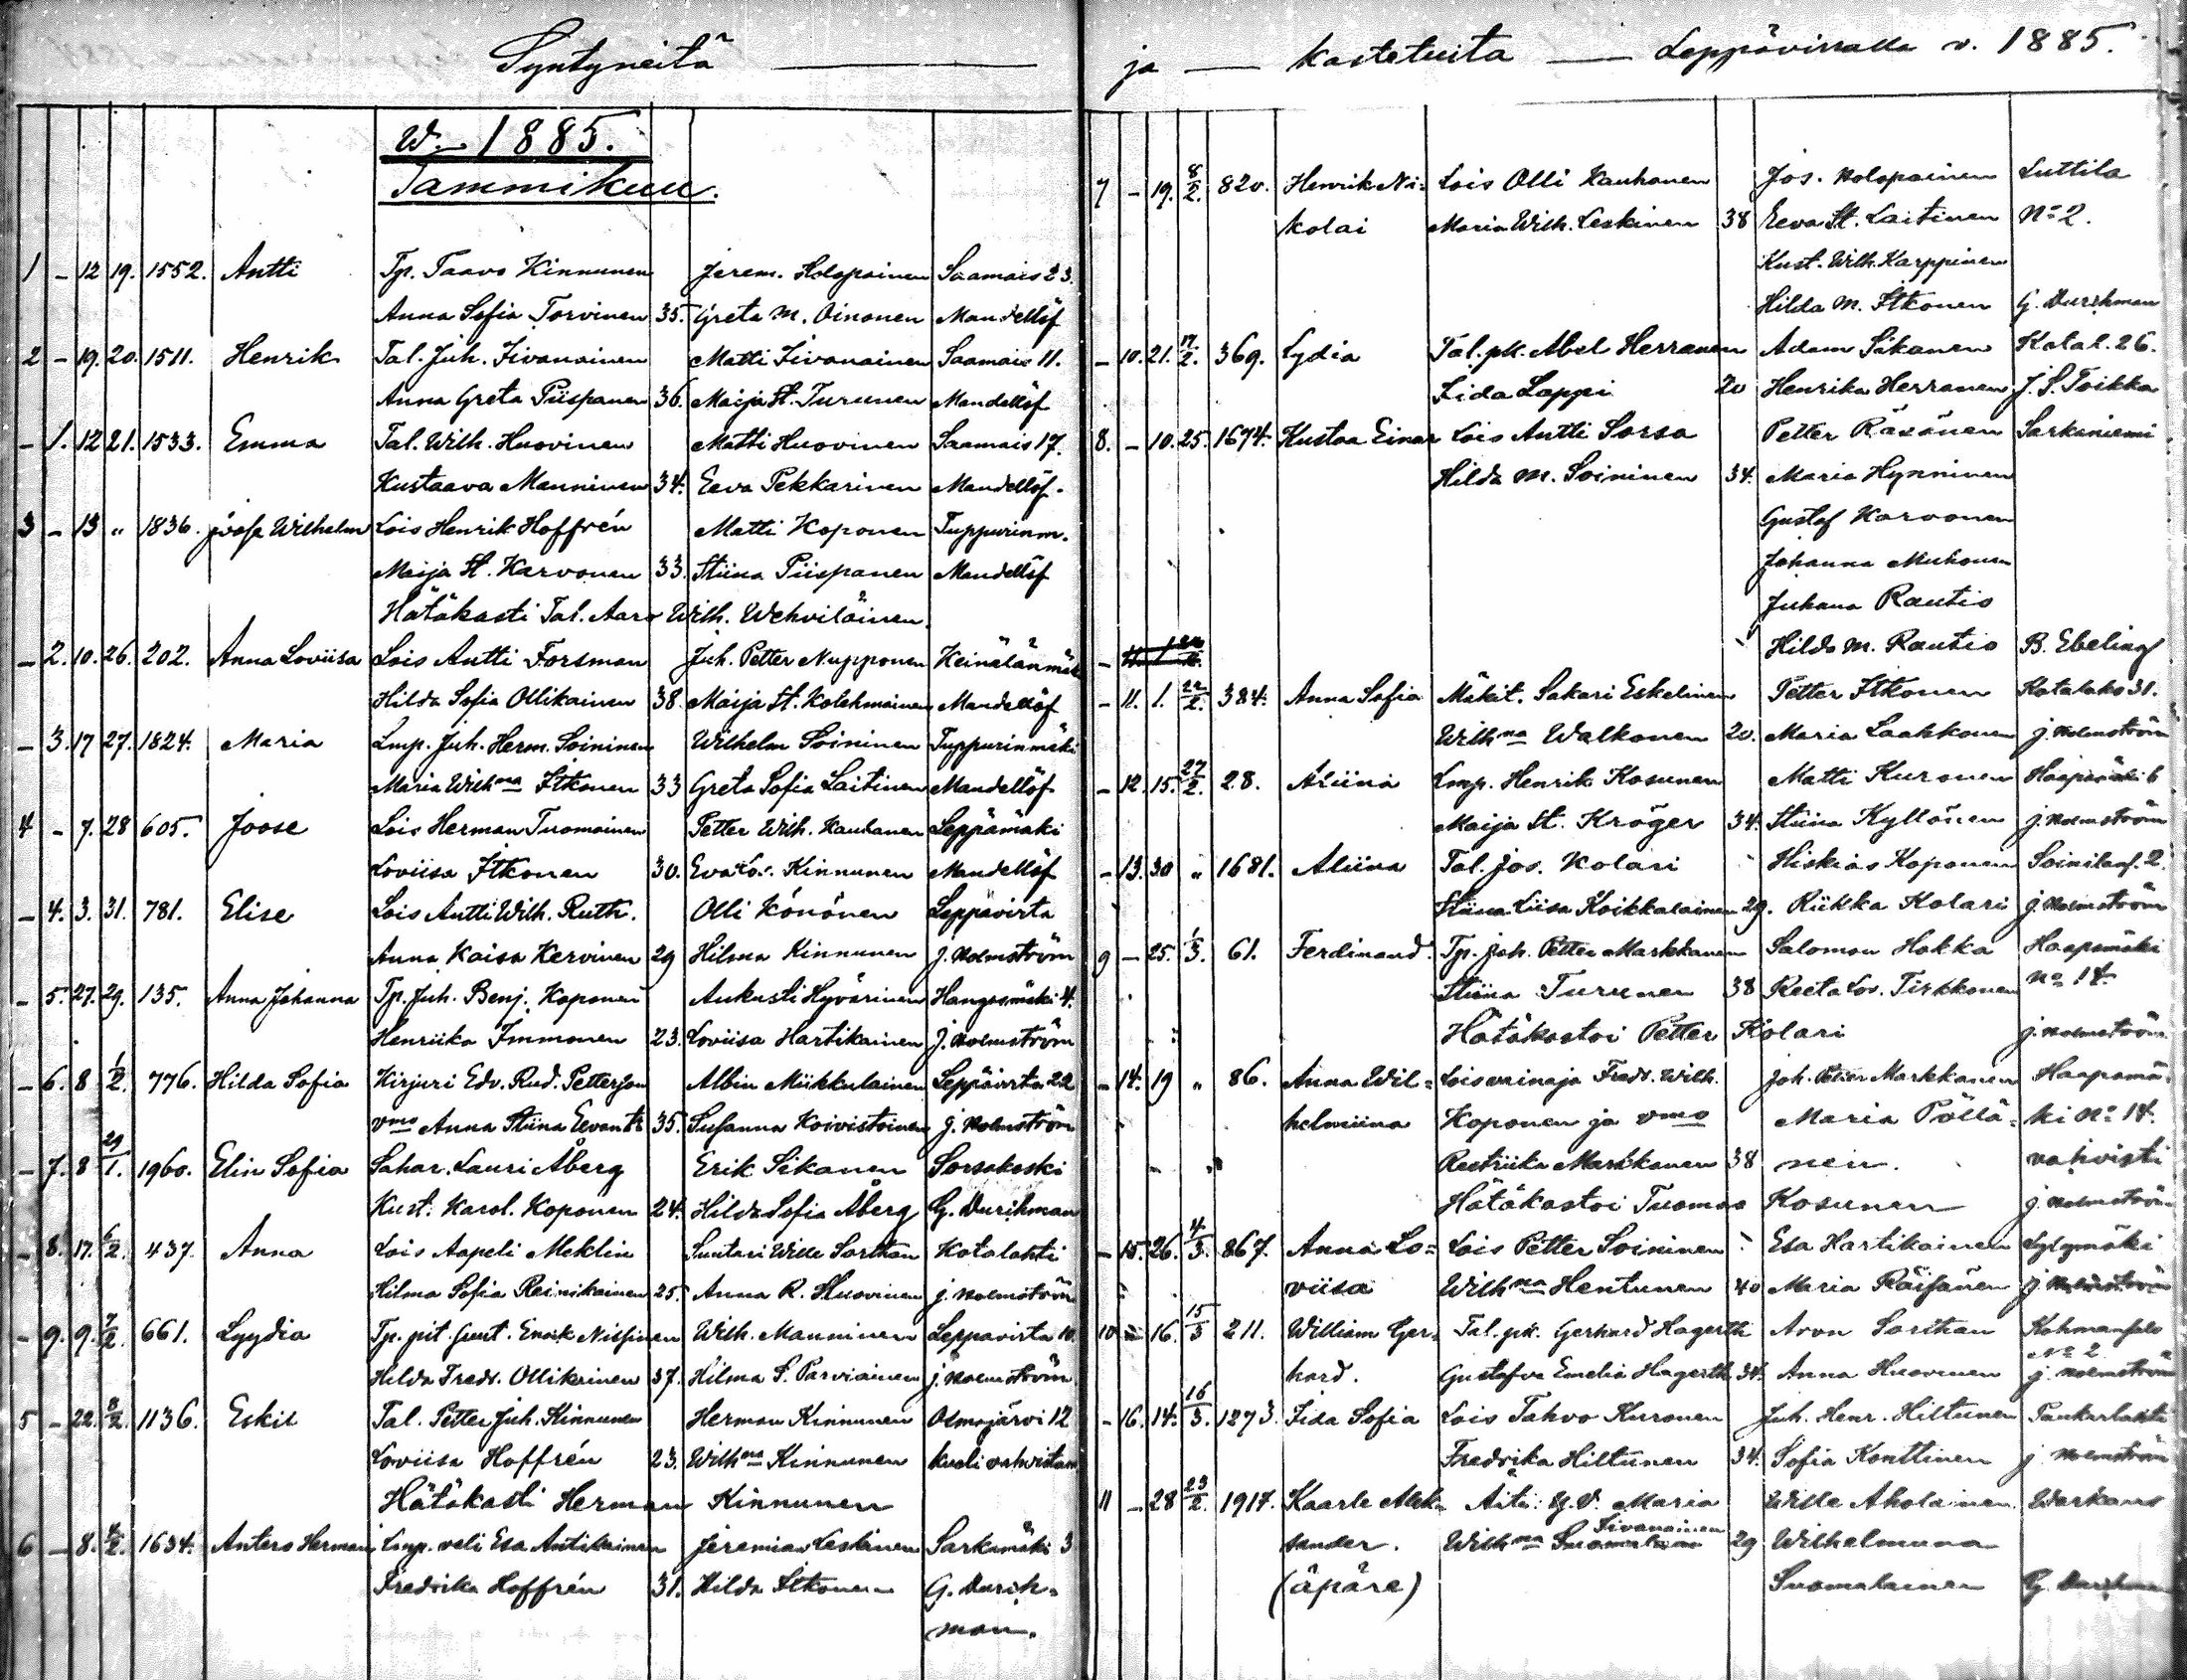 Syntyneitä
W. 1885.
Tammikuu.
1 - 12 19. 1552. Antti Tp. Taavo Kinnunen Jerem. Holopainen Saamais 23.
Anna Sofia Torvinen 35. Greta M. Oinonen Mandellöf
2 - 19. 20. 1511. Henrik Tal. Juh. Iivanainen Matti Iivanainen Saamais 11.
Anna Greta Piispanen 36. Maija St. Turunen Mandellöf
- 1. 12 21. 1533. Emma Tal. Wilh. Huovinen Matti Huovinen Saamais 17.
Kustaava Manninen 34. Eeva Pekkarinen Mandellöf.
3 - 13 " 1836. Wilhelm Lois Henrik Hoffrén Matti Koponen Tuppurinm.
Maija St. Karvonen 33. Stiina Piispanen Mandellöf
Hätäkasti Tal. Aaro Wilh. Wehviläinen.
- 2. 10. 26. 202. Anna Loviisa Lois Antti Forsman Juh. Petter Nupponen
Hilda Sofia Ollikainen 38. Maija St. Kolehmainen Mandellöf
- 3. 17 27. 1824. Maria Lmp. Juh. Herm. Soininen Wilhelm Soininen Tuppurinmäki
Maria Wilhna Itkonen 33 Greta Sofia Laitinen Mandellöf
4 - 7. 28 605. Joose Lois Herman Tuomainen Petter Wilh. Kauhanen Leppämäki
Loviisa Itkonen 30. Eva Lov. Kinnunen Mandellöf
- 4. 3. 31. 781. Elise Lois Antti Wilh. Ruth. Olli Könönen Leppävirta
Anna Kaisa Kervinen 29 Hilma Kinnunen J. Holmström
- 5. 27. 29. 135. Anna Johanna Tp. Juh. Benj. Koponen Aukusti Hyvärinen Hangasmäki 4.
Henriika Immonen 23. Loviisa Hartikainen J. Holmström
- 6. 8 1/2. 776. Hilda Sofia Kirjuri Edv. Rud. Petterson Albin Miikkulainen Leppävirta 22
vmo Anna Stiina 35. Susanna Koivistoinen J. Holmström
- 7. 8 29/1. 1960. Elin Sofia Sahar. Lauri Åberg Erik Sikanen Sorsakoski
Kust. Karol. Koponen 24. Hilda Sofia Åberg G. Durchman
- 8. 17. 6/2. 437. Anna Lois Aapeli Meklin Suntari Wille Sorthan Kotalahti
Hilma Sofia Reinikainen 25. Anna R. Huovinen J. Holmström
- 9. 9. 7/2. 661. Lyydia Wilh. Manninen Leppävirta 10.
Hilda Fredr. Ollikainen 37. Hilma S. Parviainen J. Holmström
5 - 22. 8/2. 1136. Eskil Tal. Petter Juh. Kinnunen Herman Kinnunen Osmajärvi 12
Loviisa Hoffrén 23. Wilhna Kinnunen
Hätäkasti Herman Kinnunen
6 - 8. 4/2. 1634. Antero Herman Lmp. veli Esa Antikainen Jeremias Leskinen Sarkamäki 3
Fredrika Hoffrén 31. Hilda Itkonen G. Durch=
man.
ja kastetuita Leppävirralla v. 1885.
7 - 19. 8/2. 820. Henrik Ni= Lois Olli Kauhanen Jos. Holopainen Luttila
kolai Maria Wilh. Leskinen 38 Eeva St. Laitinen No 2.
Kust. Wilh. Karppinen
Hilda M. Itkonen G. Durchman
- 10. 21. 17/2. 369. Lydia Tal. pk. Abel Herranen Adam Sikanen Kotal. 26.
Iida Lappi 20 Henrika Herranen J. S. Toikka
8. - 10. 25. 1674. Kustaa Einar Lois Antti Sorsa Petter Räsänen Sarkaniemi
Hilda M. Soininen 34. Maria Hynninen
Gustaf Karvonen
Johanna Muhonen
Juhana Rautio
Hilda M. Rautio B. Ebeling
- 11. 1. 22/2. 384. Anna Sofia Mäkit. Sakari Eskelinen Petter Itkonen Kotalaks 31.
Wilhna Walkonen 20. Maria Laakkonen J. Holmström
- 12. 15. 27/2. 28. Aliina Lmp. Henrik Kosunen Matti Kuronen Haapamäki 6
Maija St. Kröger 34. Stiina Kyllönen J. Holmström
- 13. 30 " 1681. Aliina Tal. Jos. Kolari Hiskias Koponen Soinilans. 2.
Stiina Liisa Koikkalainen 29. Riikka Kolari J. Holmström
9 - 25. 1/3. 61. Ferdinand. Tp. Joh. Petter Markkanen Salomon Hakka Haapamäki
Stiina Turunen 38 Reeta Lov. Tirkkonen No 14.
Hätäkastoi Petter Kolari J. Holmström
- 14. 19 " 86. Anna Wil= Loisvainaja Fredr. Wilh. Joh. Petter Markkanen Haapamä=
helmiina Koponen ja vmo Maria Pöllä= ki No 14.
Reetriika Markkanen 38 nen. vahvisti
Hätäkastoi Tuomas Kosunen J. Holmström
- 15. 26. 4/3. 867. Anna Lo= Lois Petter Soininen Esa Hartikainen Lylymäki
viisa Wilhna Hentunen 40 Maria Räisänen J. Holmström
10 - 16. 15/3 211. William Ger= Tal. pk. Gerhard Hagerth Aron Sorthan
No 2
hard. Gustafva Emelia Hagerth 34. Anna Huovinen J. Holmström
- 16. 14. 16/3. 1273. Iida Sofia Lois Tahvo Kuronen Juh. Henr. Hiltunen Paukarlahti
Fredrika Hiltunen 34. Sofia Konttinen J. Holmström
11 - 28 23/2. 1917. Kaarle Alek= Äiti: Y. V. Maria Wille Aholainen Warkaus
sander. Wilhna Iivanainen 29 Wilhelmina
(äpäre) Suomalainen G. Durchman